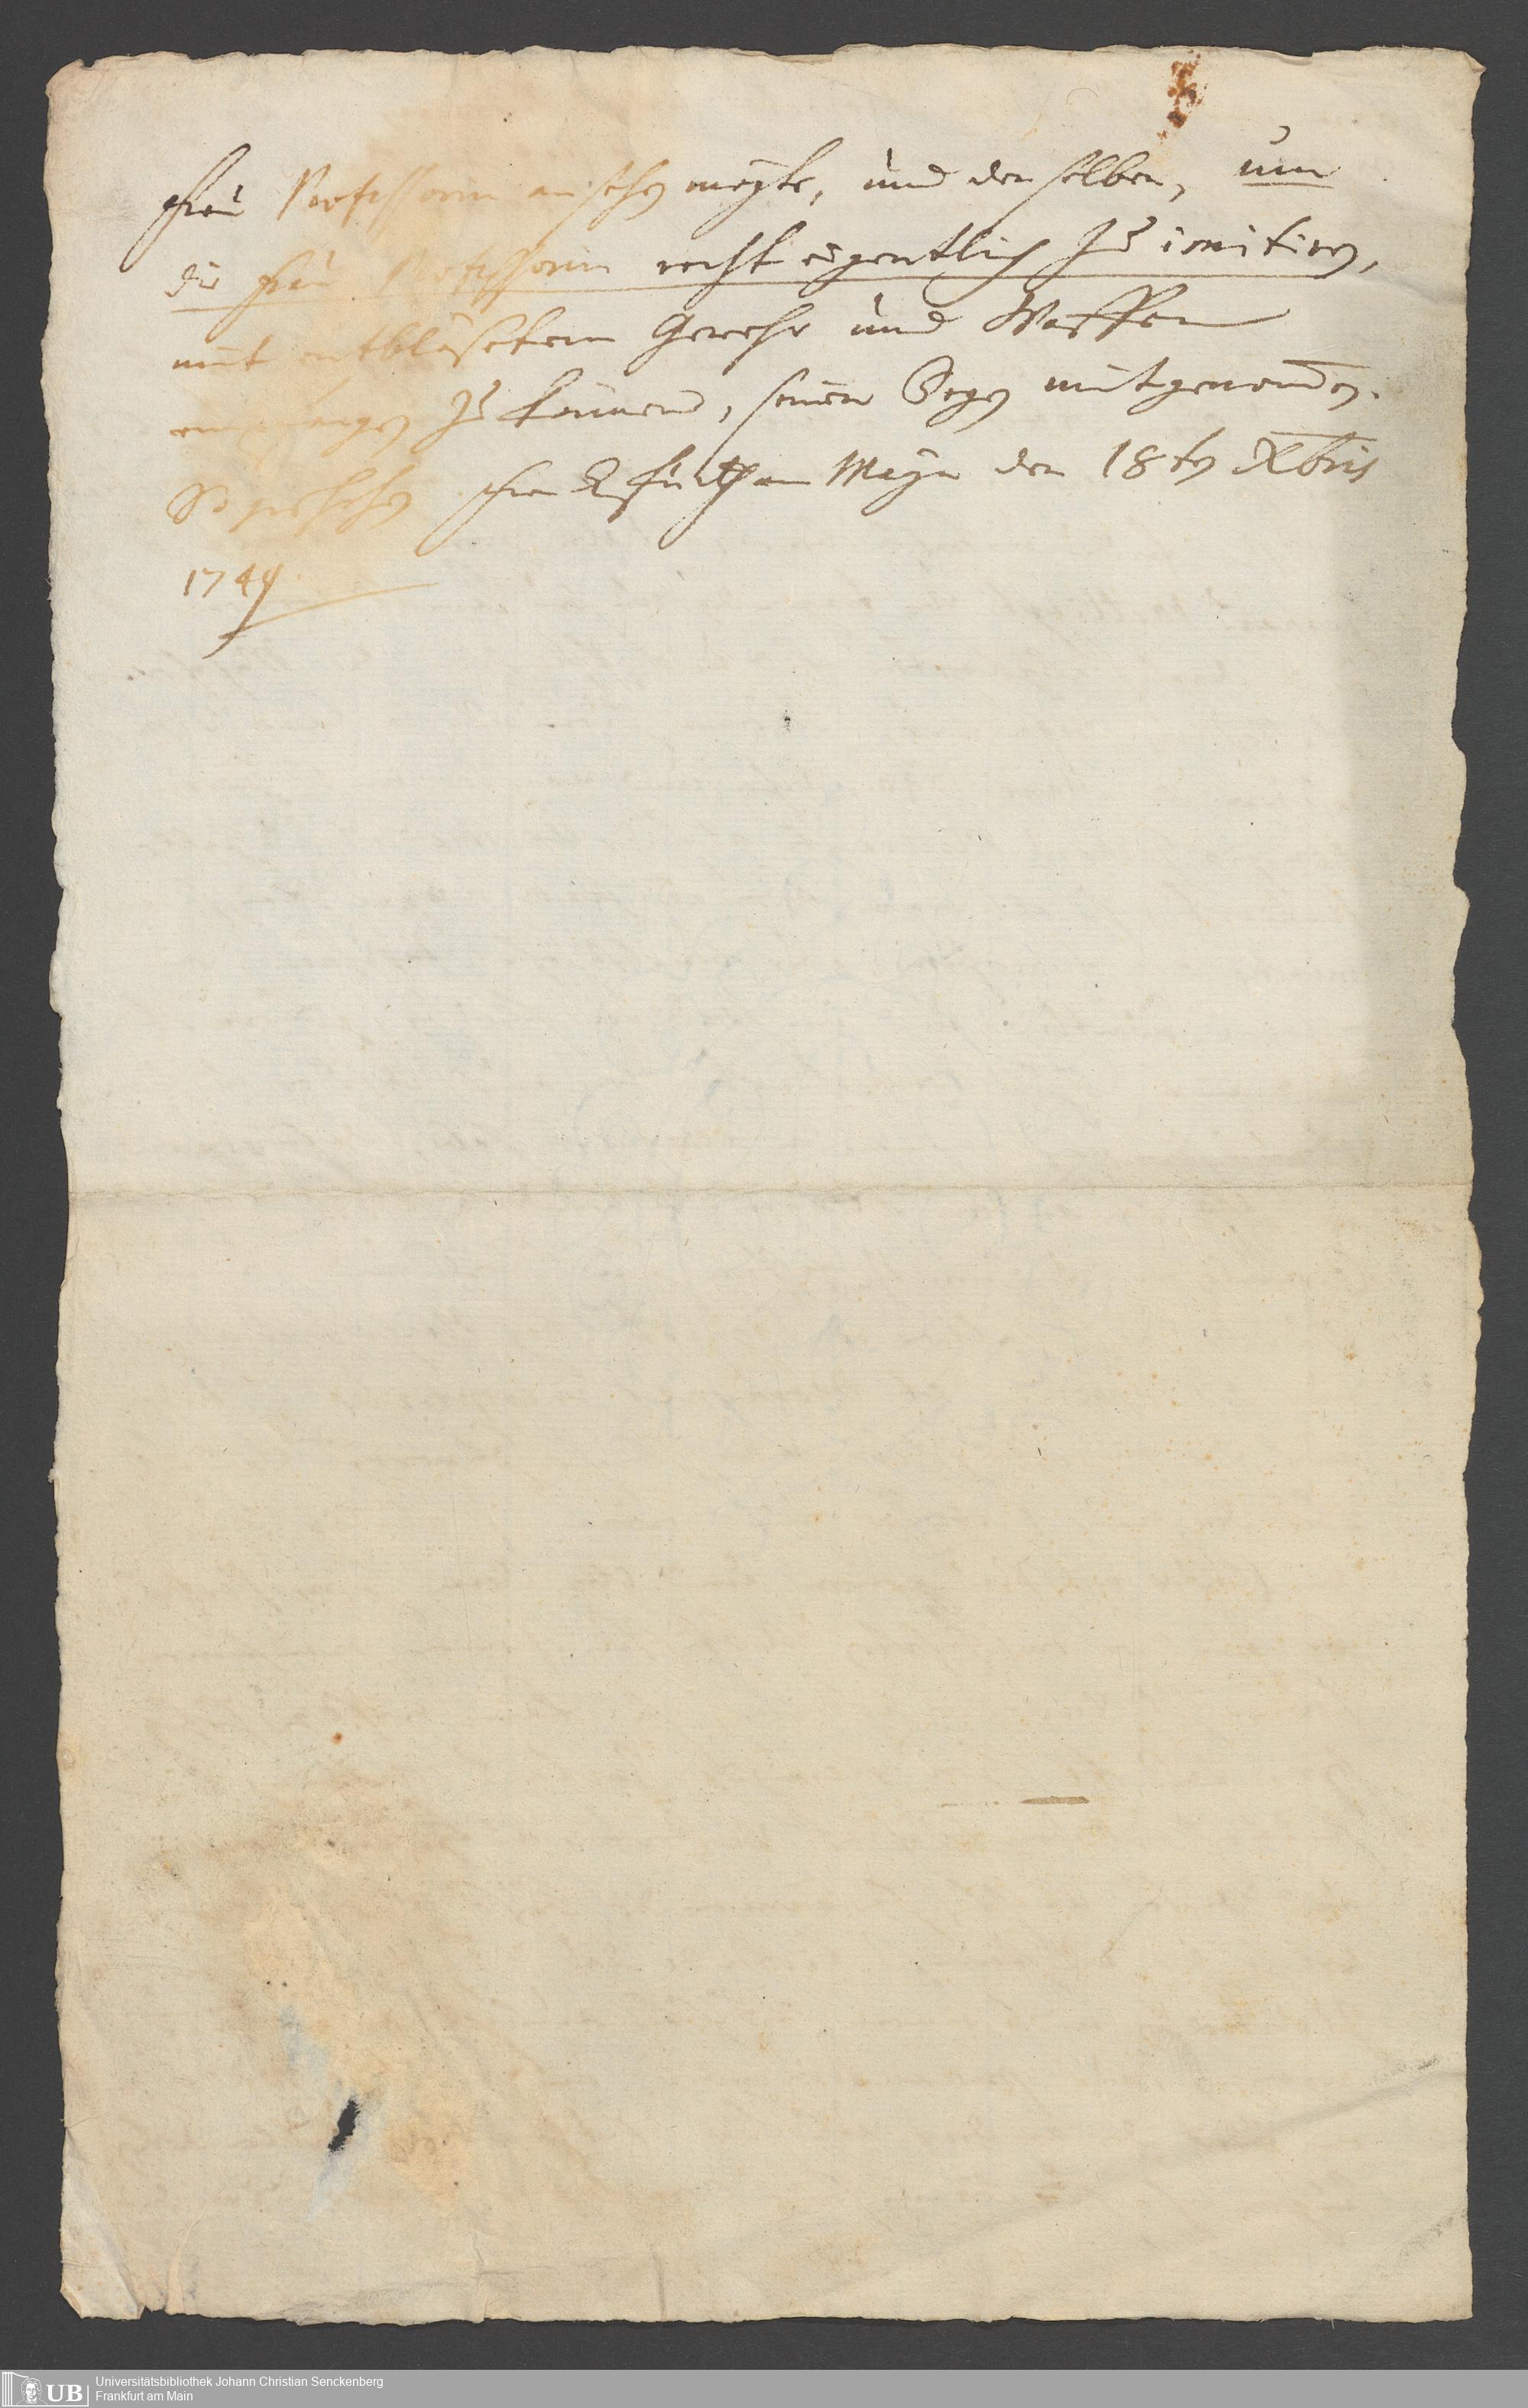 Frau Professorin ansehen mögte, und denselben, um
die Frau Professorin recht eigentlich zu imitiren,
mit entblößetem Gewehr und Waffen
empfangen zu können, seinen Degen mitgenom̅en.
So geschehen Franckfurth am Mayn den 18ten Xbris
1749
UB
Universitätsbibliothek Johann Christian Senckenberg
Frankfurt am Main